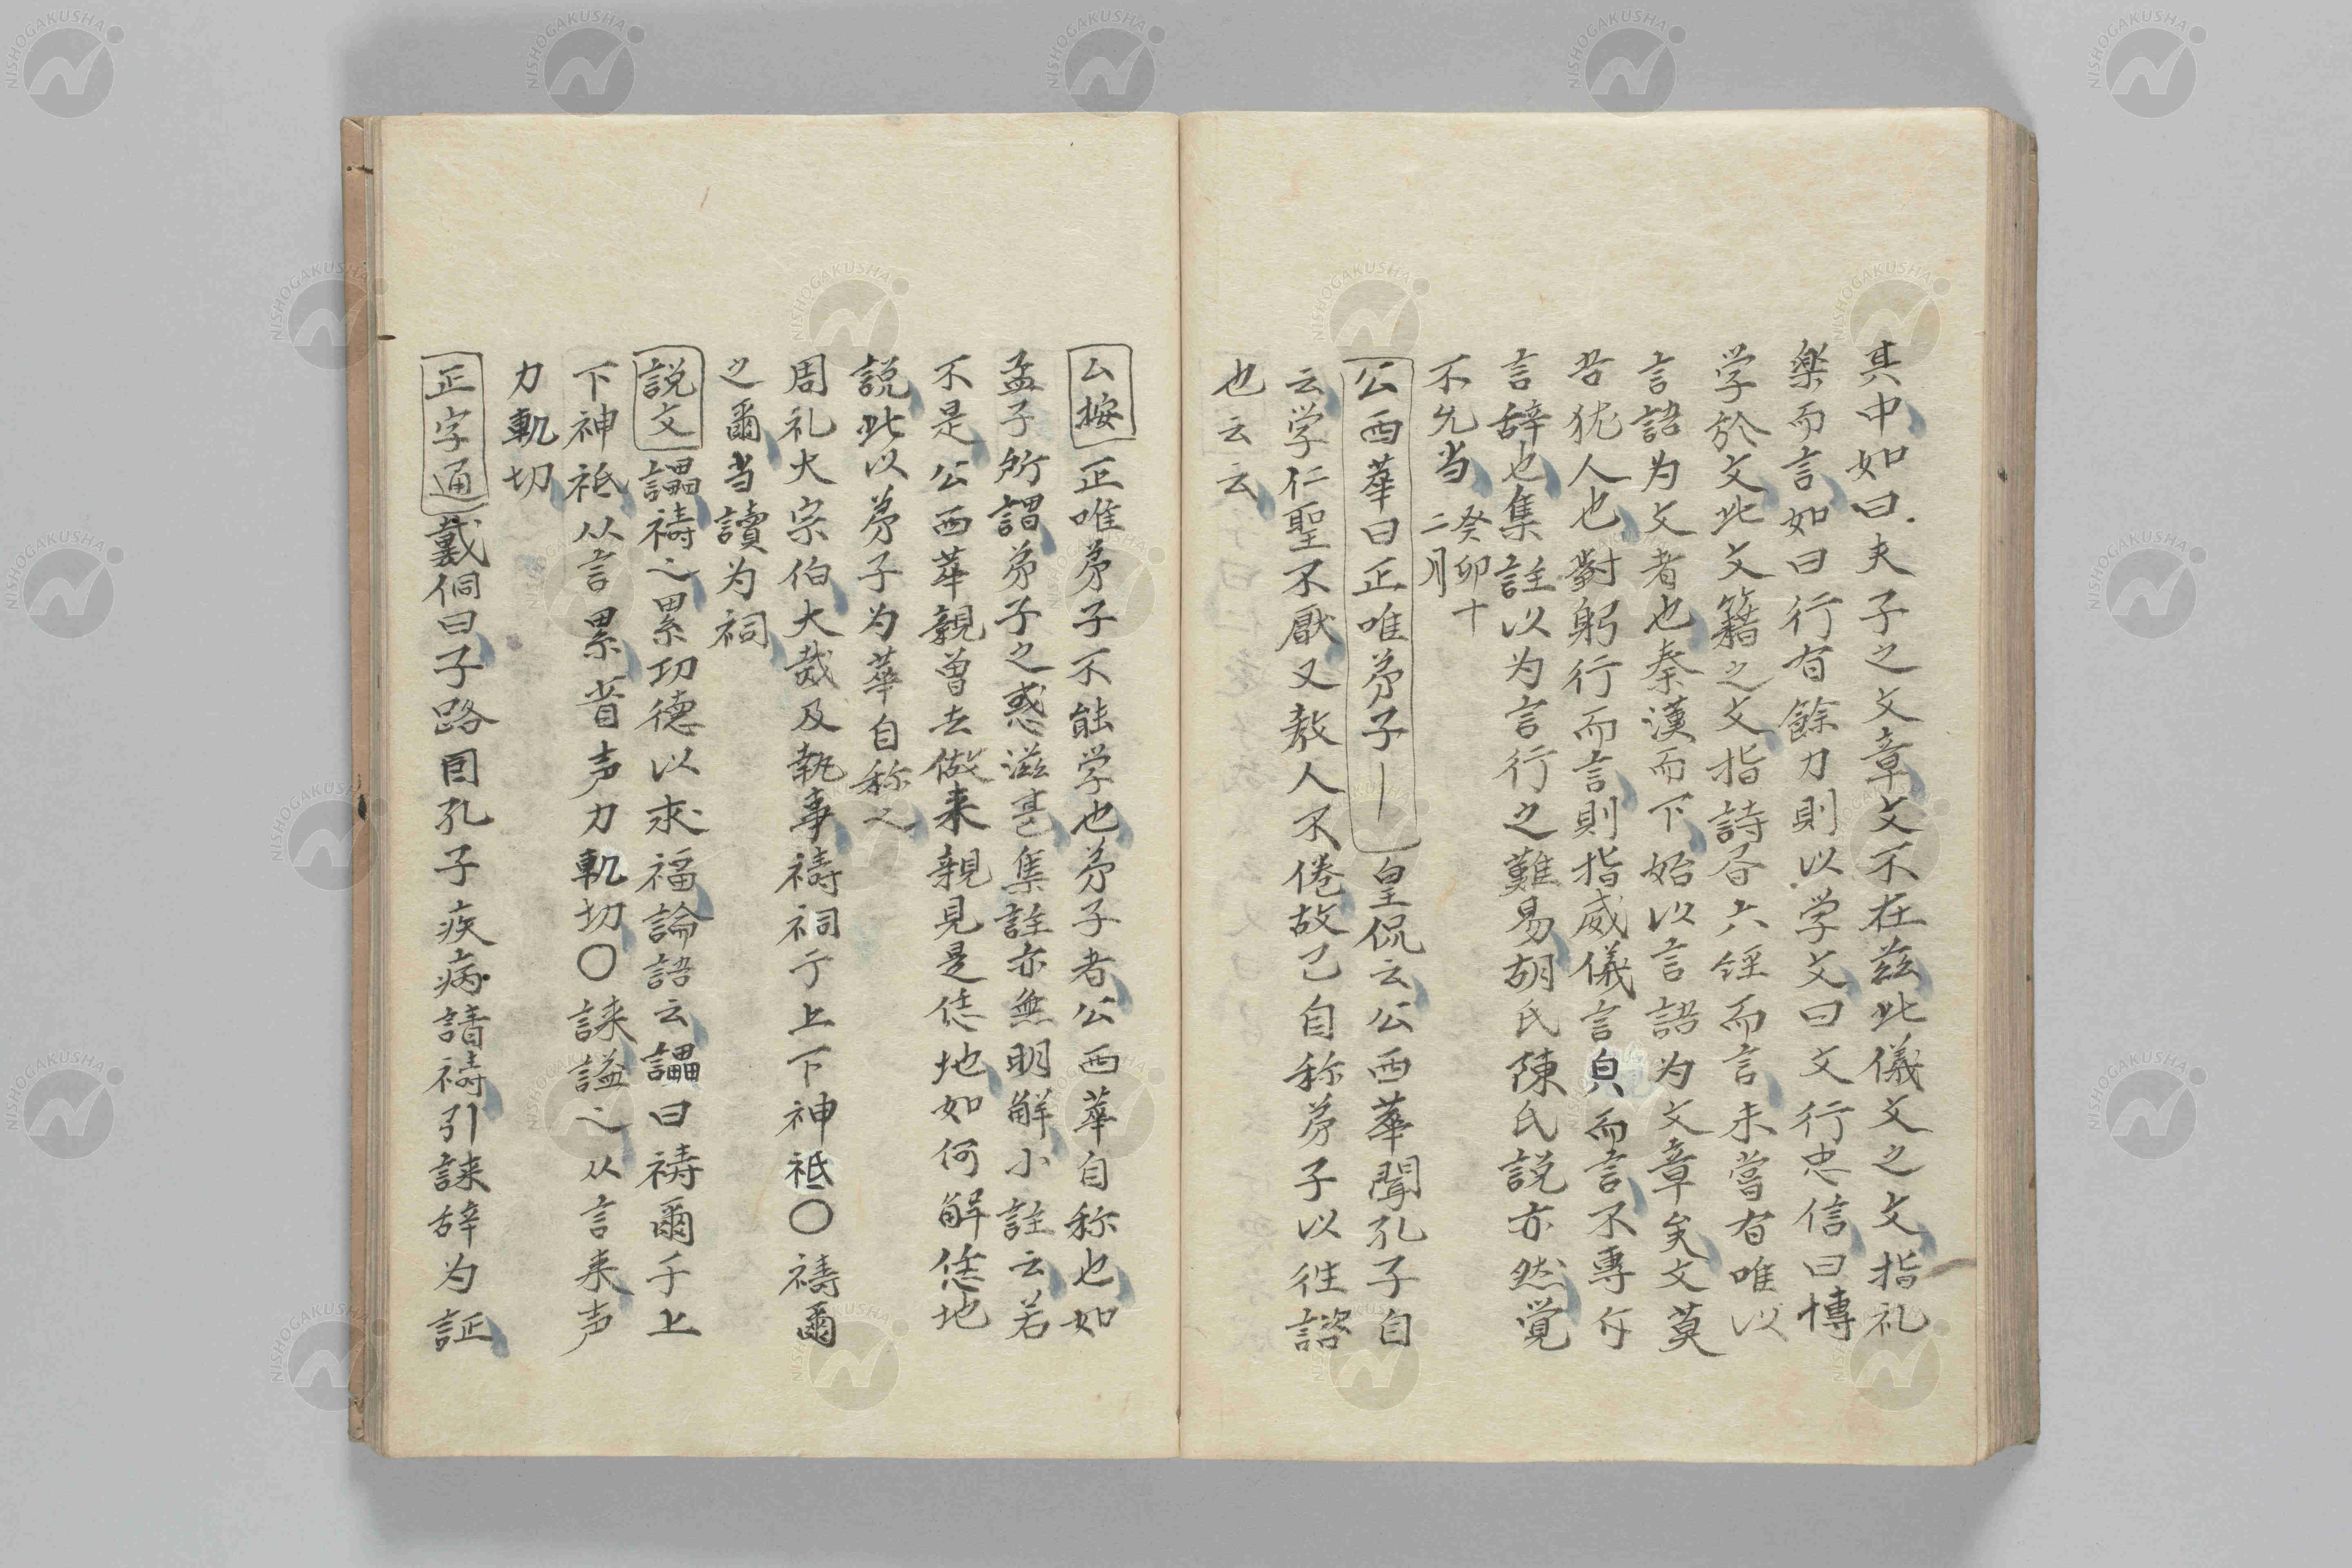 其中如曰夫子之文章文不在茲此儀文之文指礼
楽而言如曰行有餘力則以学文曰文行忠信曰博
学於文此文籍之文指詩各六経而言未嘗有唯以
言語为文者也秦漢而下始以言語为文章矣文莫
若犹人也對躬行而言則指威儀言貞而言不専斥
言辞也集註以为言行之難易胡氏陳氏説亦然覚
不允当 癸卯十二月
公西華曰正唯弟子｜皇侃云公西華聞孔子自
云学仁聖不厭又教人不倦故己自称弟子以往諮
也云云
公按正唯弟子不能学也弟子者公西華自称也如
孟子所謂弟子之惑滋甚集註亦無明解小註云若
不是公西華親曽去做来親見是恁地如何解恁地
説此以弟子为華自称之
周礼大宗伯大烖及執事禱祠于上下神祇〇禱爾
之爾当讀为祠
説文讄禱之累功德以求福論語云讄曰禱爾于上
下神祇从言畾省声力軌切〇誄謚之从言耒声
力軌切
正字通戴侗曰子路因孔子疾病請禱引誄辞为証